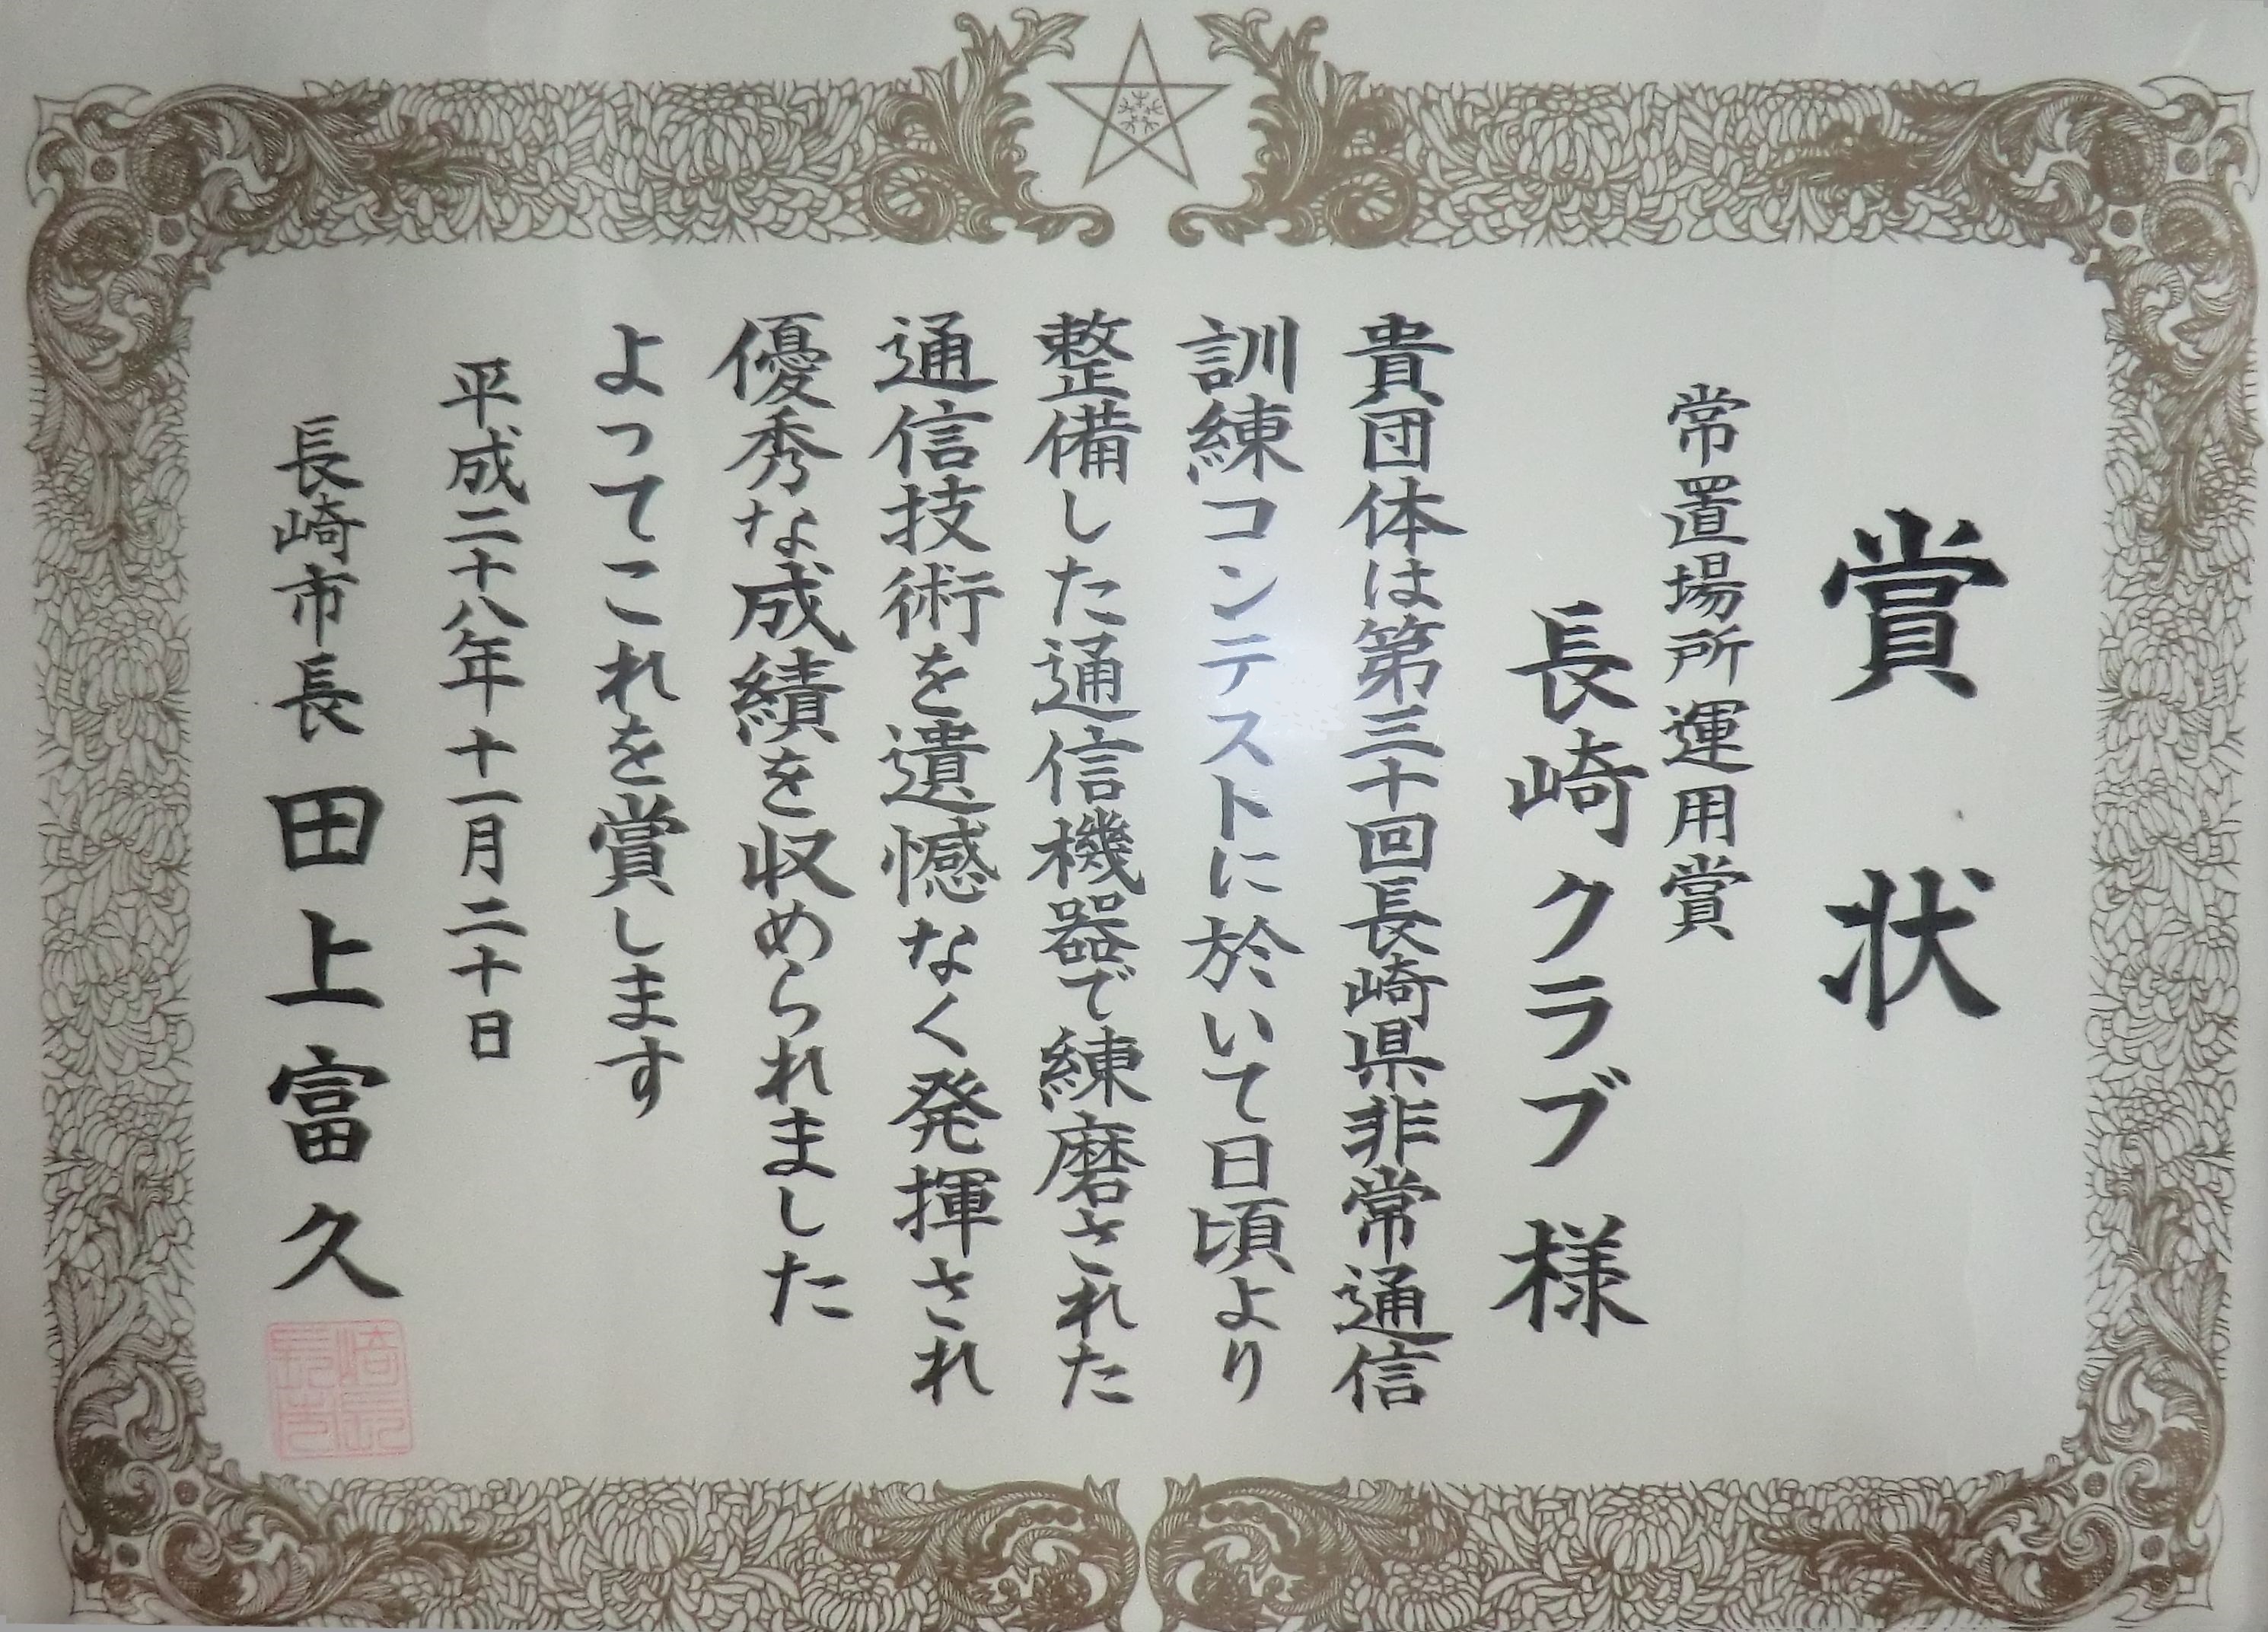 賞状
常置場所運用賞
長崎クラブ様
貴団体は第三十回長崎県非常通信
訓練コンテストに於いて日頃より
整備した通信機器で練磨された
通信技術を遺憾なく発揮され
優秀な成績を収められました
よってこれを賞します
平成二十八年十一月二十日
長崎市長 田上富久
崎長
長市